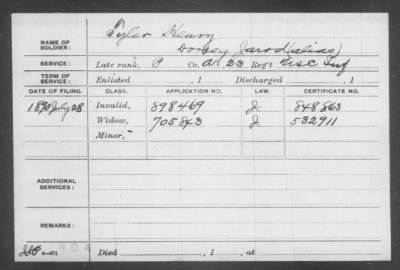 NAME OF SOLDIER: Tyler Henry
Dorsey Jarod (alias)
SERVICE: Late rank, P Co. A, 23 Reg't U S C Inf
TERM OF SERVICE: Enlisted , 1 Discharged , 1
DATE OF FILING. CLASS. APPLICATION NO. LAW. CERTIFICATE NO.
1890 July 28 Invalid, 898469 J 848863
Widow, 705843 J 532911
Minor,
ADDITIONAL SERVICES:
REMARKS:
Died , 1 , at